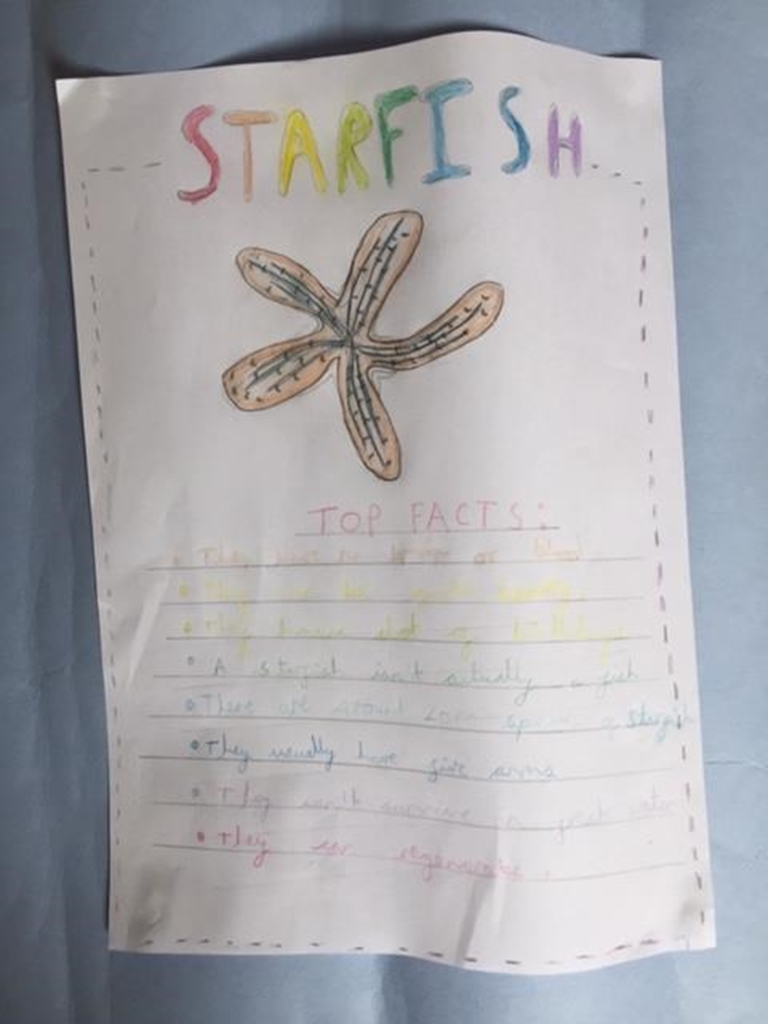 STARFISH
TOP FACTS:
• They have no brain or blood
• They can be
• They have alot of
• A starfish isn't actually a fish
• There are around 2000 species of starfish
• They usually have five arms
• They can't survive in fresh water
• They can regenerate.